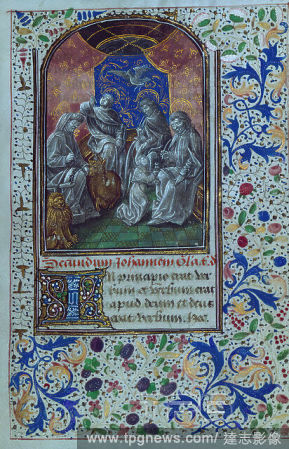 Secundum Johannem Gla.
In principio erat ver
bum et verbum erat
apud deum et deus
erat verbum. hoc
www.tpgnews.com / 達志影像